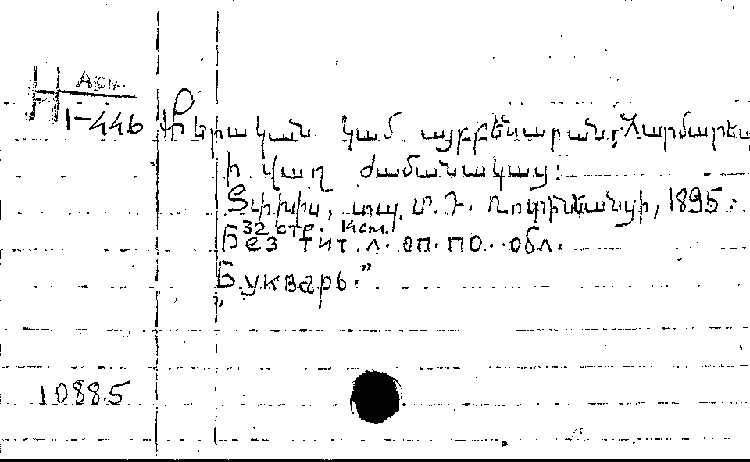 Арм.
1-446
Քերական կամ այբբենարան, Յարմարեալ
ի վաղ ժամանակաց:
Տփխիս, տպ. Մ. Դ. Ռոտինեանցի, 1895.
32 стр. 14 см.
Без тит. л. оп. по обл.
„Букварь.”
10885